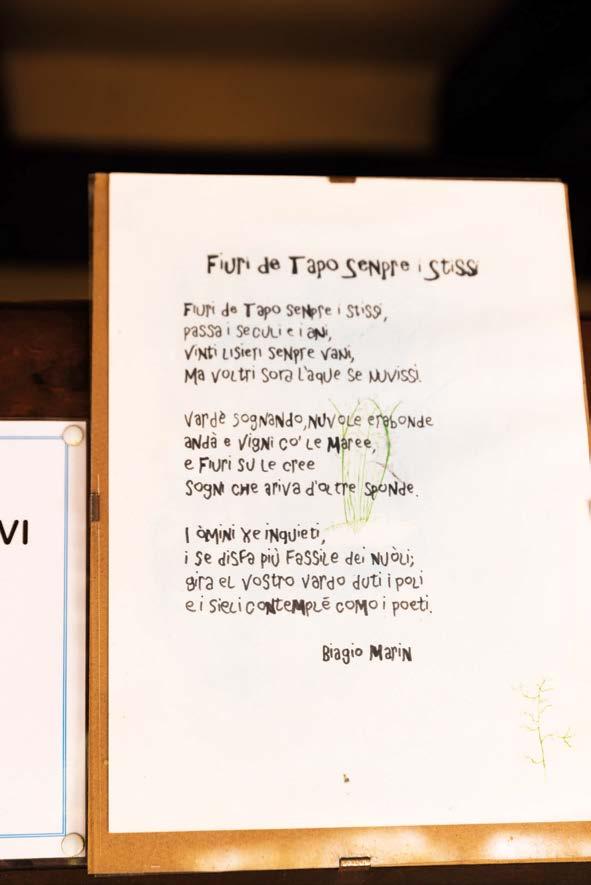 Fiuri de Tapo senpre i stissi
Fiuri de Tapo senpre i stissi,
passa i seculi e i ani,
vinti lisieri senpre vani,
Ma voltri sora l'aque se nuvissi.
Vardè sognando, nuvole erabonde
andà e vigni co' le Maree,
e Fiuri su le cree
sogni che ariva d'oltre sponde.
I òmini xe inquieti,
i se disfa più Fassile dei nuòli;
gira el vostro vardo duti i poli
e i sieli contemplé como i poeti.
Biagio Marin
VI